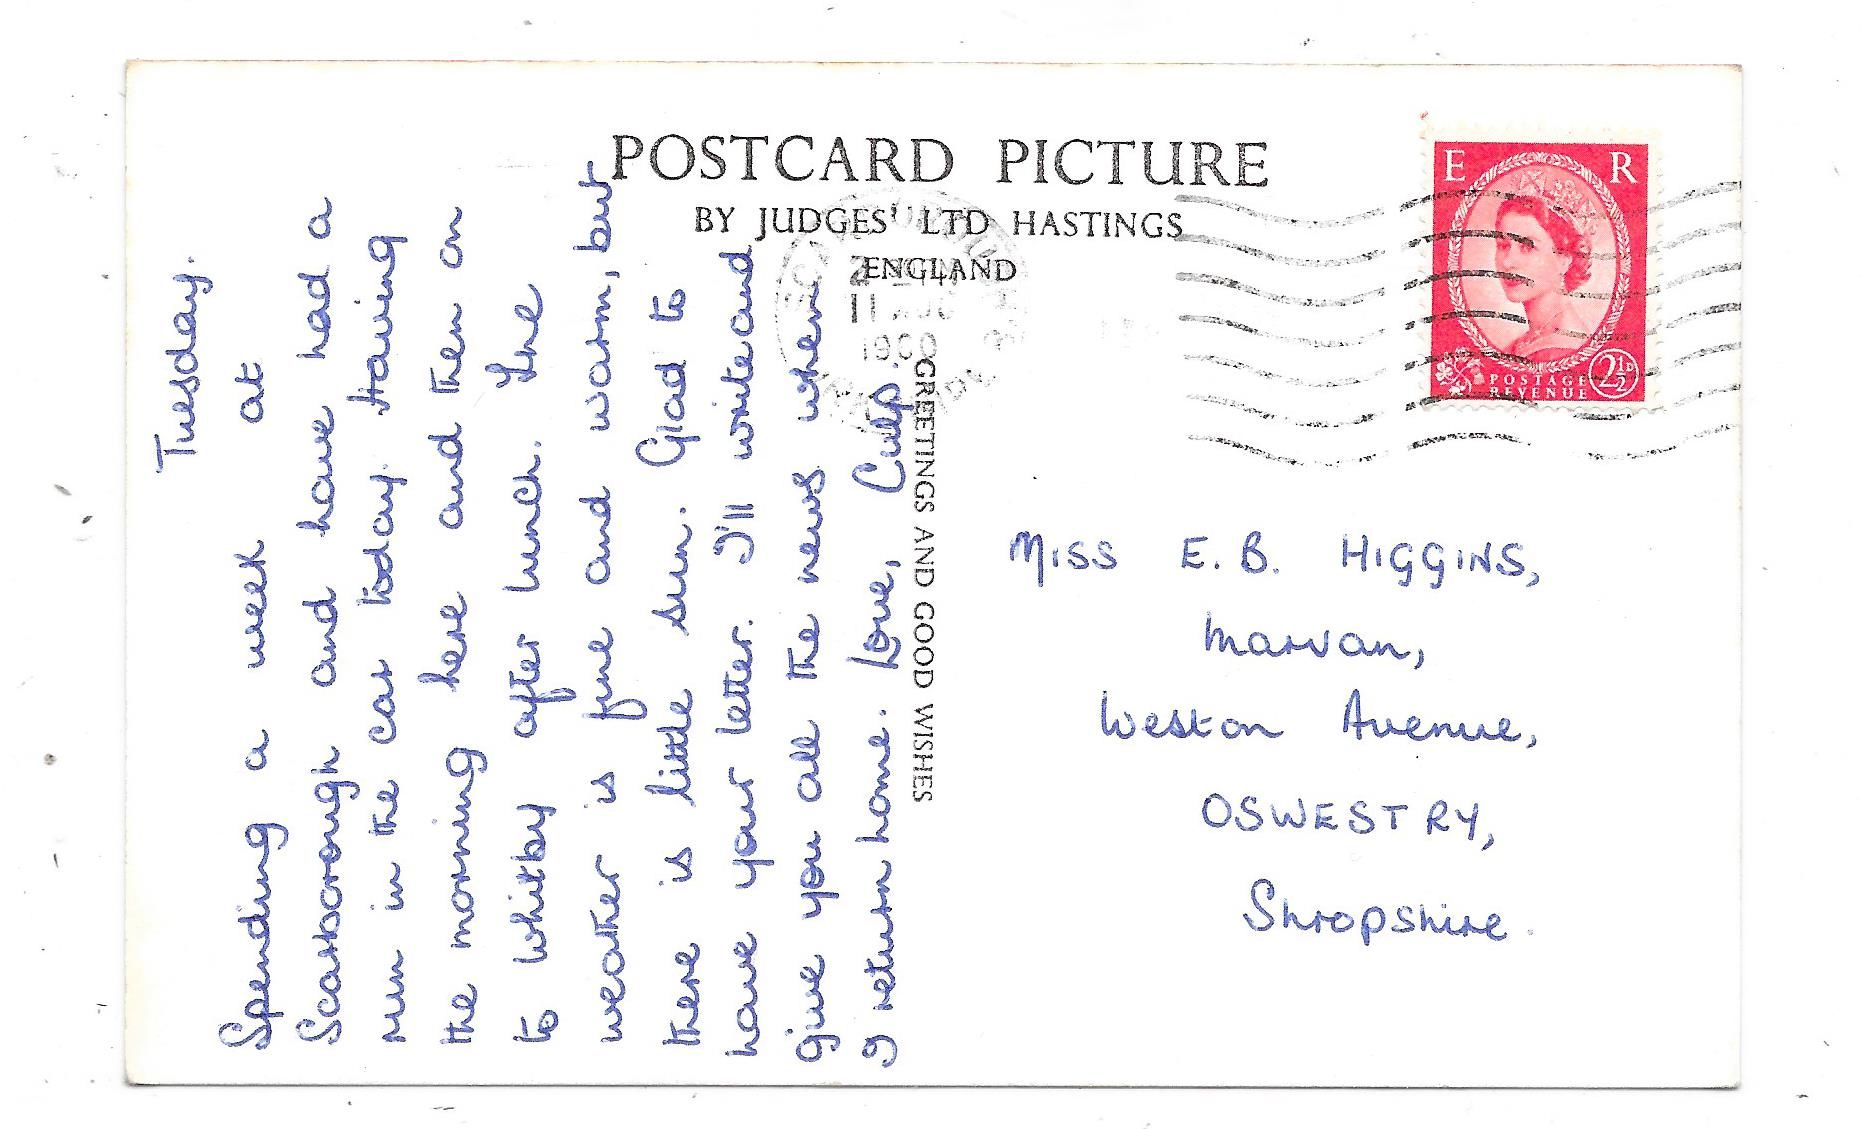 POSTCARD PICTURE
BY JUDGES' LTD HASTINGS
ENGLAND
GREETINGS AND GOOD WISHES
E R
POSTAGE
REVENUE
2½D
11
1960
Tuesday.
Spending a week at
Scarborough and have had a
run in the car today. Having
the morning here and then on
to Whitby after lunch. The
weather is fine and warm, but
there is little sun. Glad to
have your letter. I'll write and
give you all the news when
I return home. Love,
MISS E. B. HIGGINS,
Marvan,
Weston Avenue,
OSWESTRY,
Shropshire.